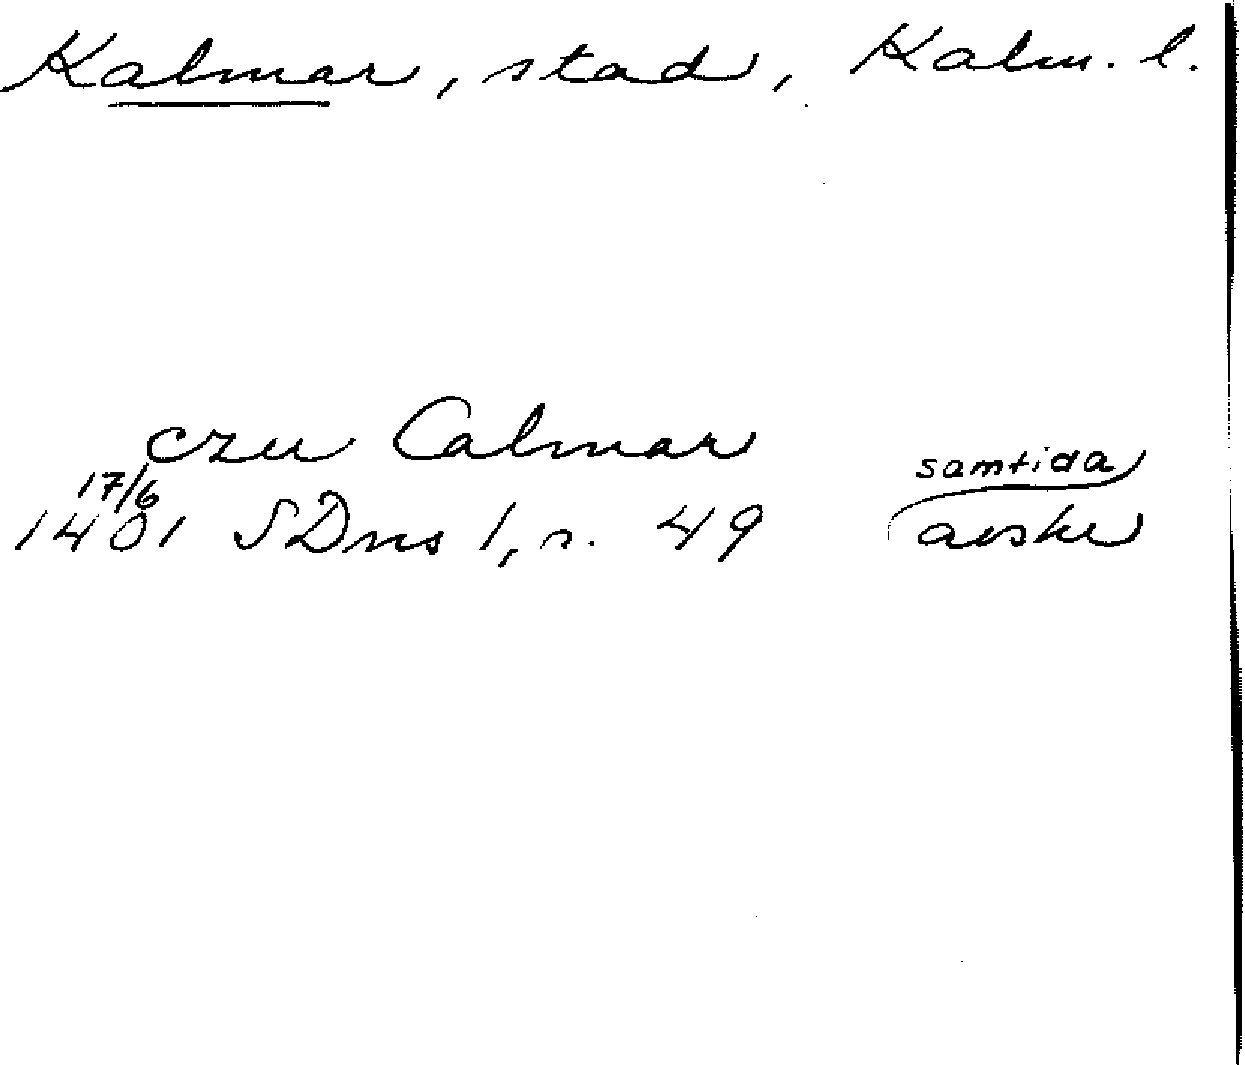 Kalmar, stad, Kalm. l.
czu Calmar
17/6 samtida
1401 SDns 1, s. 49 avskr